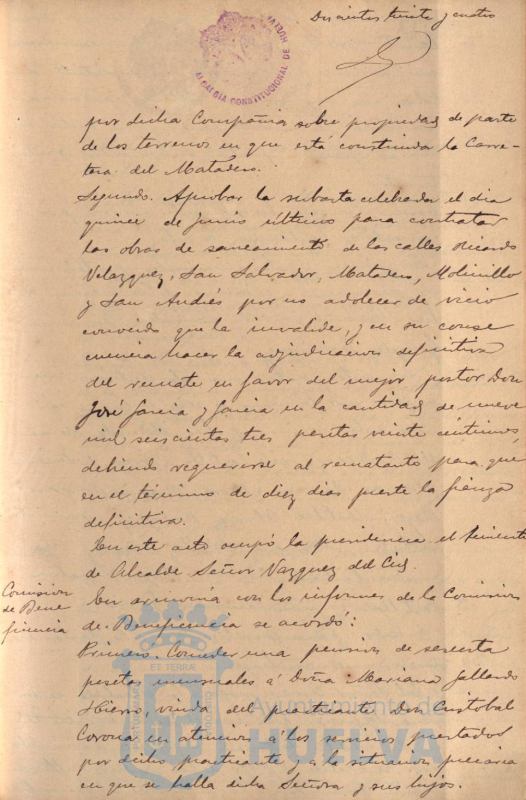 Doscientos treinta y cuatro
ALCALDIA CONSTITUCIONAL DE HUELVA
por dicha Compañia sobre propiedad de parte
de los terrenos en que está construida la Carre-
tera del Matadero.
Segundo. Aprobar la subasta celebrada el dia
quince de Junio último para contratar
las obras de saneamiento de las calles Ricardo
Velazquez, San Salvador, Matadero, Molinillo
y San Andrés por no adolecer de vicio
conocido que la invalide, y en su conse
cuencia hacer la adjudicacion definitiva
del remate en favor del mejor postor Don
José Garcia y Garcia en la cantidad de nueve
mil seiscientas tres pesetas veinte centimos,
debiendo requerirse al rematante para que
en el término de diez dias preste la fianza
definitiva.
En este acto ocupó la presidencia el Teniente
de Alcalde Señor Vazquez del Cid.
Comision
de Bene
ficencia
En armonia con los informes de la Comision
de Beneficencia se acordó:
Primero. Conceder una pension de sesenta
pesetas mensuales á Doña Mariana Gallardo
Hierro, viuda del practicante Don Cristobal
Corona en atencion á los servicios prestados
por dicho practicante y a la situacion precaria
en que se halla dicha Señora y sus hijos.
Ayuntamiento de
HUELVA